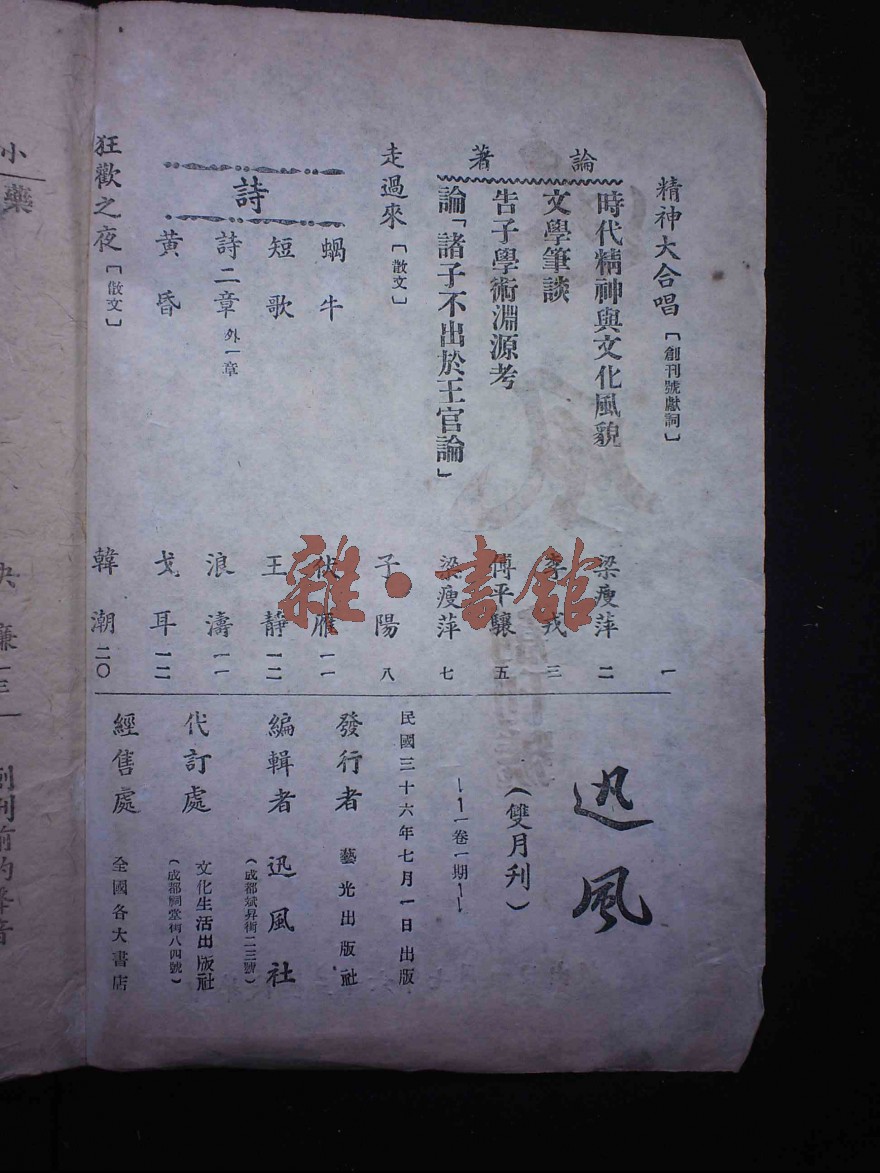 精神大合唱［創刊號獻詞］　一
論著
時代精神與文化風貌　梁瘦萍　二
文學筆談　李戎　三
告子學術淵源考　傅平驤　五
論「諸子不出於王官論」　梁瘦萍　七
走過來［散文］　子陽　八
詩
蝸牛　雁　一一
短歌　王靜　一二
詩二章　外一章　浪濤　一一
黃昏　戈耳　一二
狂歡之夜［散文］　韓潮　二〇
迅風
（雙月刊）
一卷一期
民國三十六年七月一日出版
發行者　藝光出版社
編輯者　迅風社
（成都斌昇街二三號）
代訂處　文化生活出版社
（成都祠堂街八四號）
經售處　全國各大書店
小
藥
雜·書館